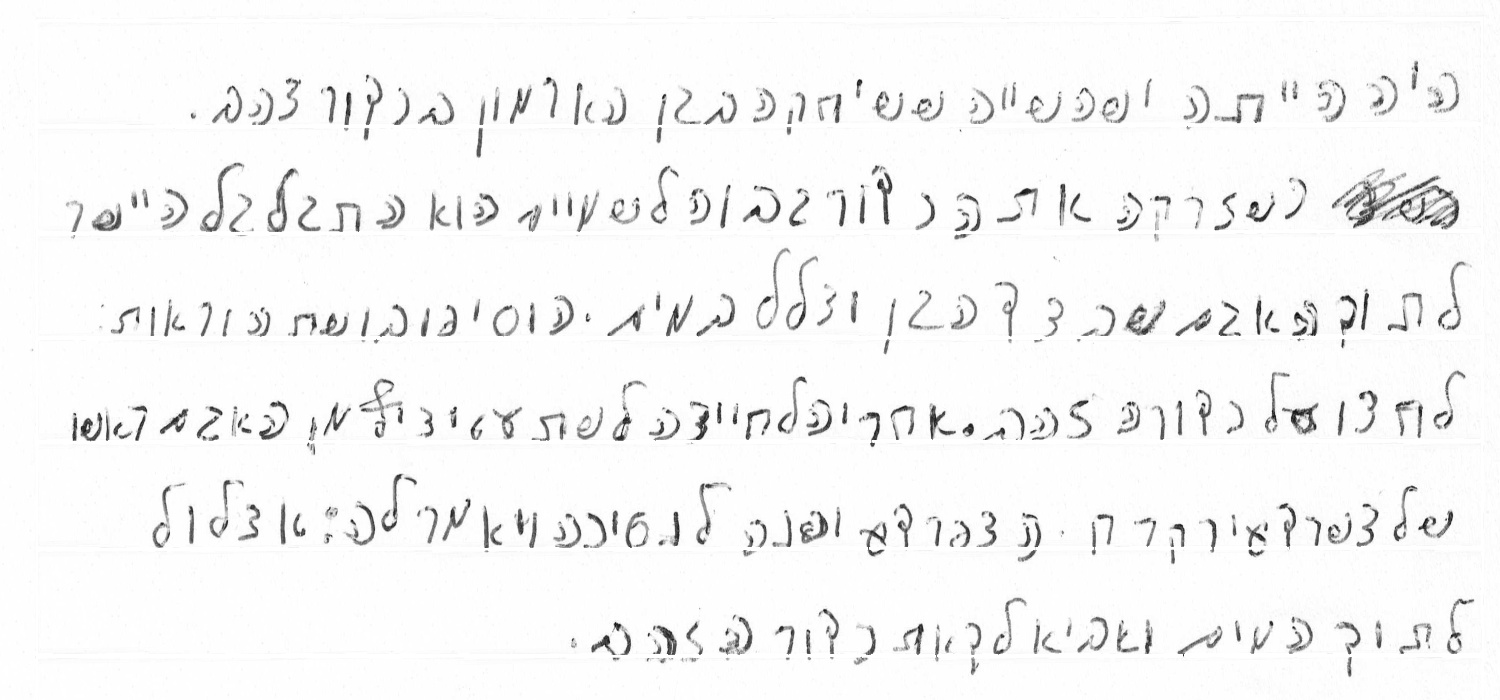 היה הייתה ושהשייה ששיחקה בגן הארמון בכדור צהב.
כשזרקה את הכדור גבוה לשמיים הוא התגלגל היישר
לתוך האגם שבצד הגן וצלל במים. הוסיפו בושח הוראות:
לחצו על כדורה זהב. אחריה לחיידה לשת עטיציץ מן האגם ראשו
של צפרדע ירקרח. הצפרדע ופנה לנסיכה ויאמר לה: אצלול
לתוך המים ואביא לך את כדור הזהב.